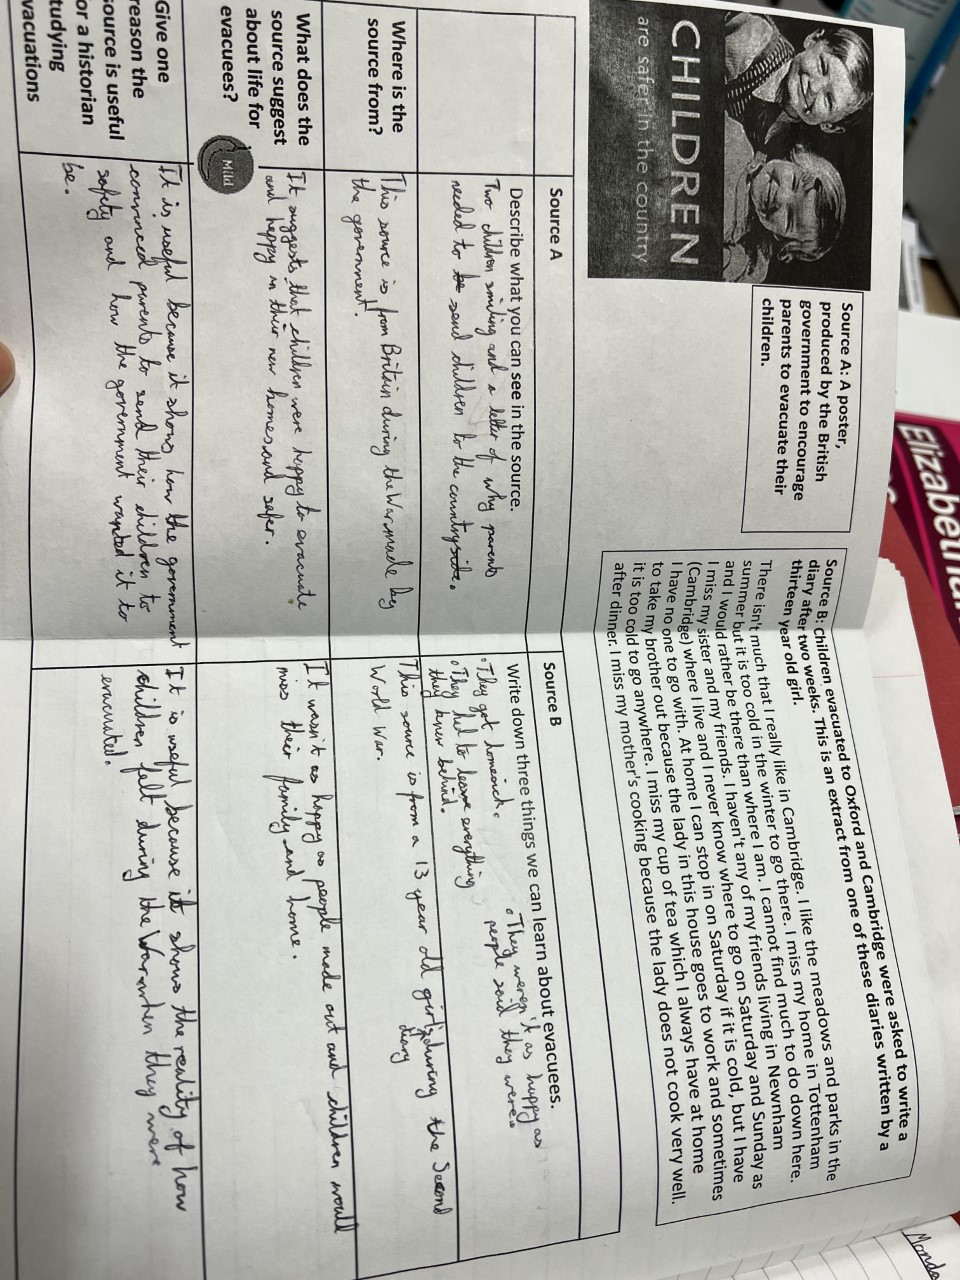 CHILDREN
are safer in the country
Source A: A poster,
produced by the British
government to encourage
parents to evacuate their
children.
Source B: Children evacuated to Oxford and Cambridge were asked to write a
diary after two weeks. This is an extract from one of these diaries written by a
thirteen year old girl.
There isn't much that I really like in Cambridge. I like the meadows and parks in the
summer but it is too cold in the winter to go there. I miss my home in Tottenham
and I would rather be there than where I am. I cannot find much to do down here.
I miss my sister and my friends. I haven't any of my friends living in Newnham
(Cambridge) where I live and I never know where to go on Saturday and Sunday as
I have no one to go with. At home I can stop in on Saturday if it is cold, but I have
to take my brother out because the lady in this house goes to work and sometimes
it is too cold to go anywhere. I miss my cup of tea which I always have at home
after dinner. I miss my mother's cooking because the lady does not cook very well.
Source A
Source B
Describe what you can see in the source.
Two children smiling and a letter of why parents
needed to send children to the countryside.
Write down three things we can learn about evacuees.
• They got homesick.
• They had to leave everything
they knew behind.
• They weren't as happy as
people said they were.
Where is the
source from?
This source is from Britain during the War made by
the government.
This source is from a 13 year old girl's during the Second
diary
World War.
What does the
source suggest
about life for
evacuees?
Mild
It suggests that children were happy to evacuate
and happy in their new homes and safer.
It wasn't as happy as people made out and children would
miss their family and home.
Give one
reason the
source is useful
or a historian
tudying
vacuations
It is useful because it shows how the government
convinced parents to send their children to
safety and how the government wanted it to
be.
It is useful because it shows the reality of how
children felt during the War when they were
evacuated.
Elizabethan
Monda